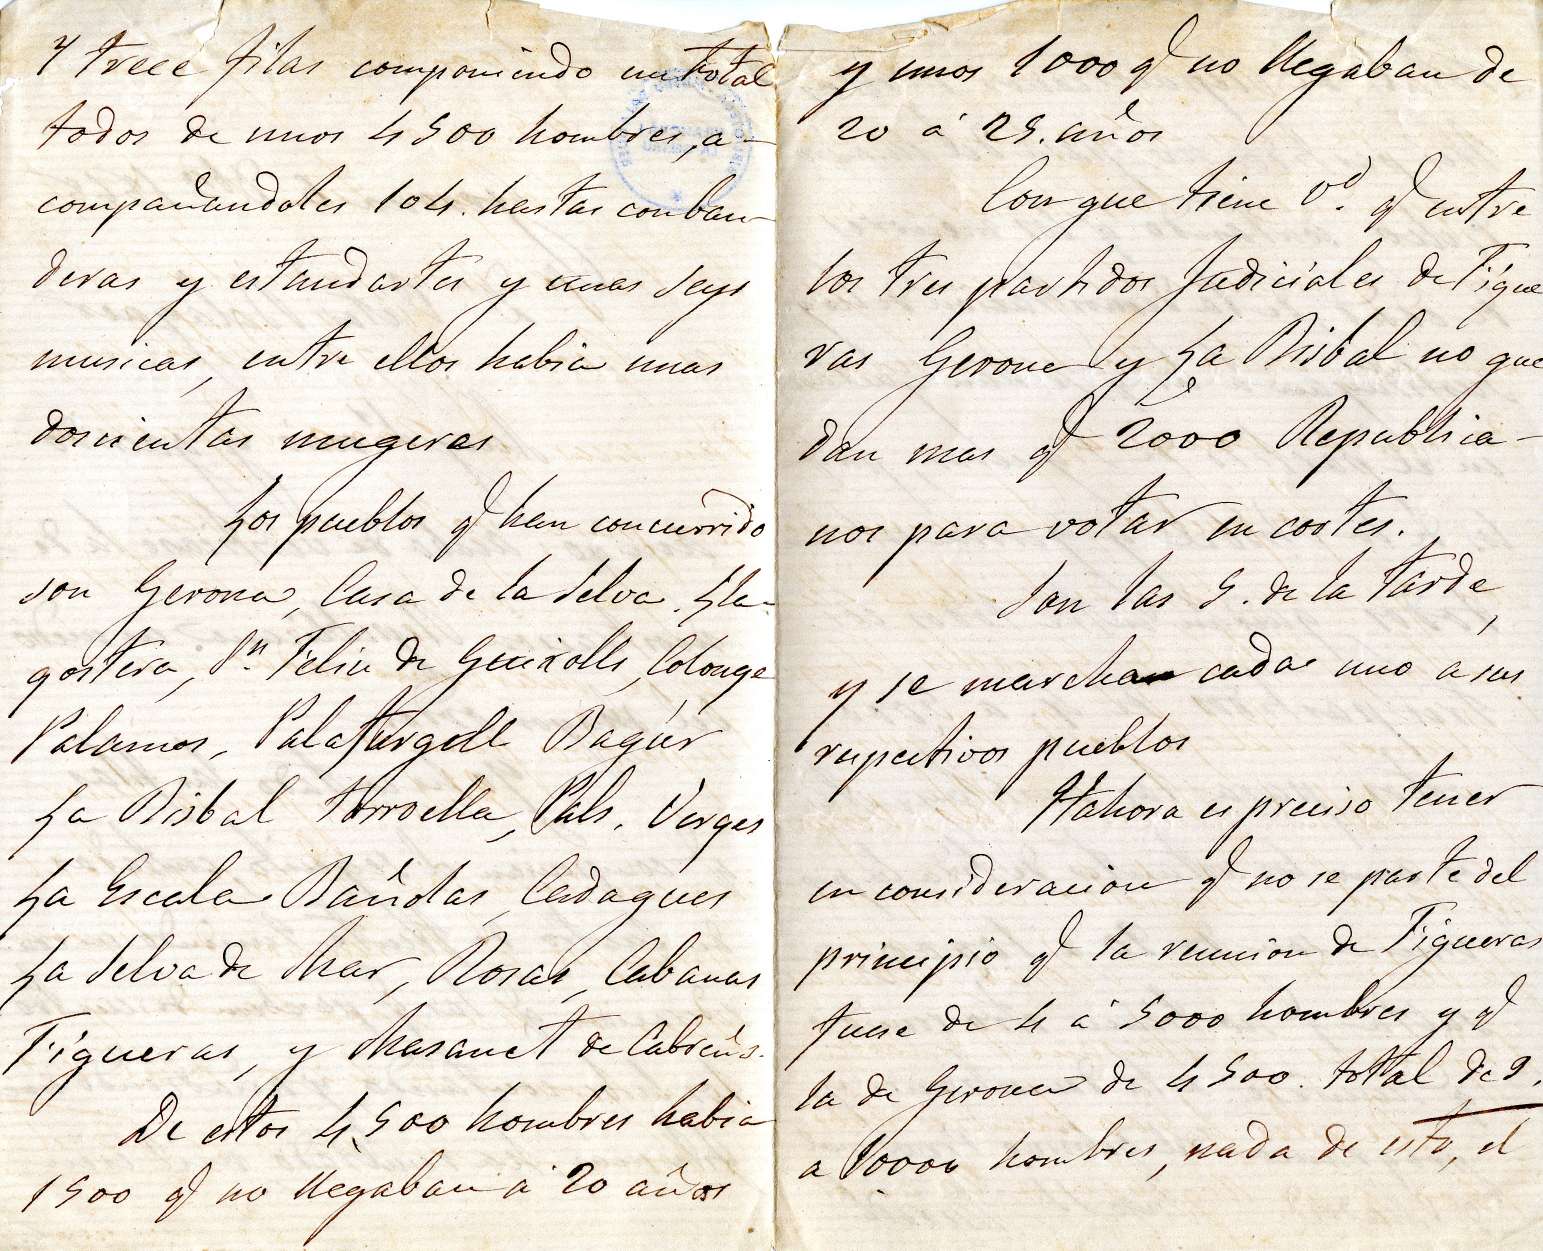 y trece filas componiendo un total
todos de unos 4500 hombres, a-
compañandoles 104. hastas con ban-
deras y estandartes y unas seys
musicas, entre ellos habia unas
doscientas mugeres
Los pueblos q han concurrido
son Gerona, Casa de la Selva. Lla-
gostera, Sn. Feliu de Guixolls, Colonge
Palamos, Palafurgell Bagúr
La Bisbal Torroella, Pals. Verges
La Escala Bañolas, Cadaques
La Selva de Mar, Rosas, Cabanas
Figueras, y Masanet de Cabreñs.
De estos 4,500 hombres habia
1500 q no llegaban á 20 años
y unos 1000 q no llegaban de
20 á 25. años
Con que tiene Vd. q entre
los tres partidos Judiciales de Figue
ras Gerona y La Bisbal no que
dan mas q 2000 Republica-
nos para votar en cortes.
Son las 5. de la tarde,
y se marchan cada uno a sus
respectivos pueblos
Hahora es preciso tener
en consideracion q no se parte del
principio q la reunion de Figueras
fuese de 4 á 5000 hombres y q
la de Gerona de 4500. total de 9.
a 10000 hombres, nada de esto, el